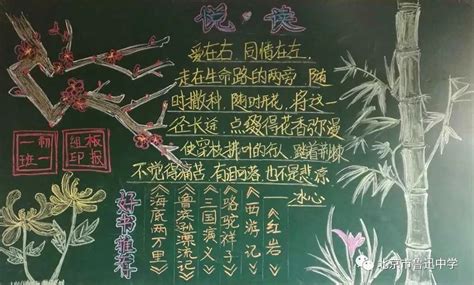 悦·读
爱在右 同情在左
走在生命路的两旁 随
时撒种 随时开花 将这一
径长途 点缀得花香弥漫
使穿枝拂叶的行人 踏着荆棘
不觉得痛苦 有泪可落 也不是悲凉
——冰心
初一
一班
板报
组印
好书推荐
《红岩》
《西游记》
《骆驼祥子》
《三国演义》
《鲁滨孙漂流记》
《海底两万里》
北京市鲁迅中学